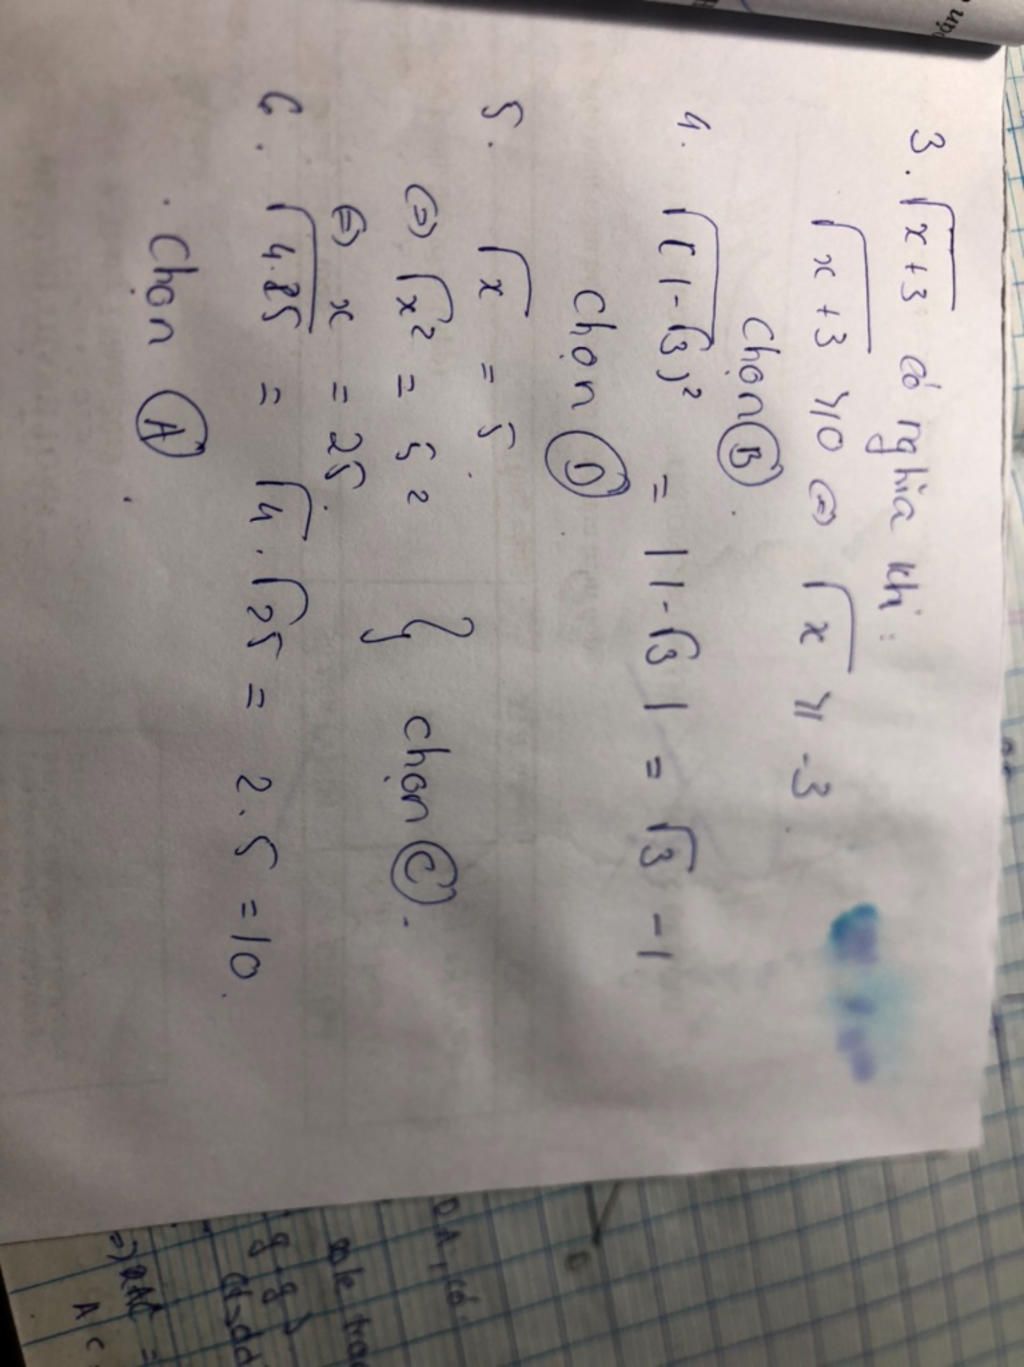 3. √x+3 có nghĩa khi:
√x+3 ≥ 0 ⇔ √x ≥ -3
Chọn B.
4. √(1-√3)² = |1-√3| = √3 - 1
Chọn D.
5. √x = 5
⇔ √x² = 5²
⇔ x = 25
} chọn C.
6. √4.25 = √4.√25 = 2.5 = 10.
. Chọn A